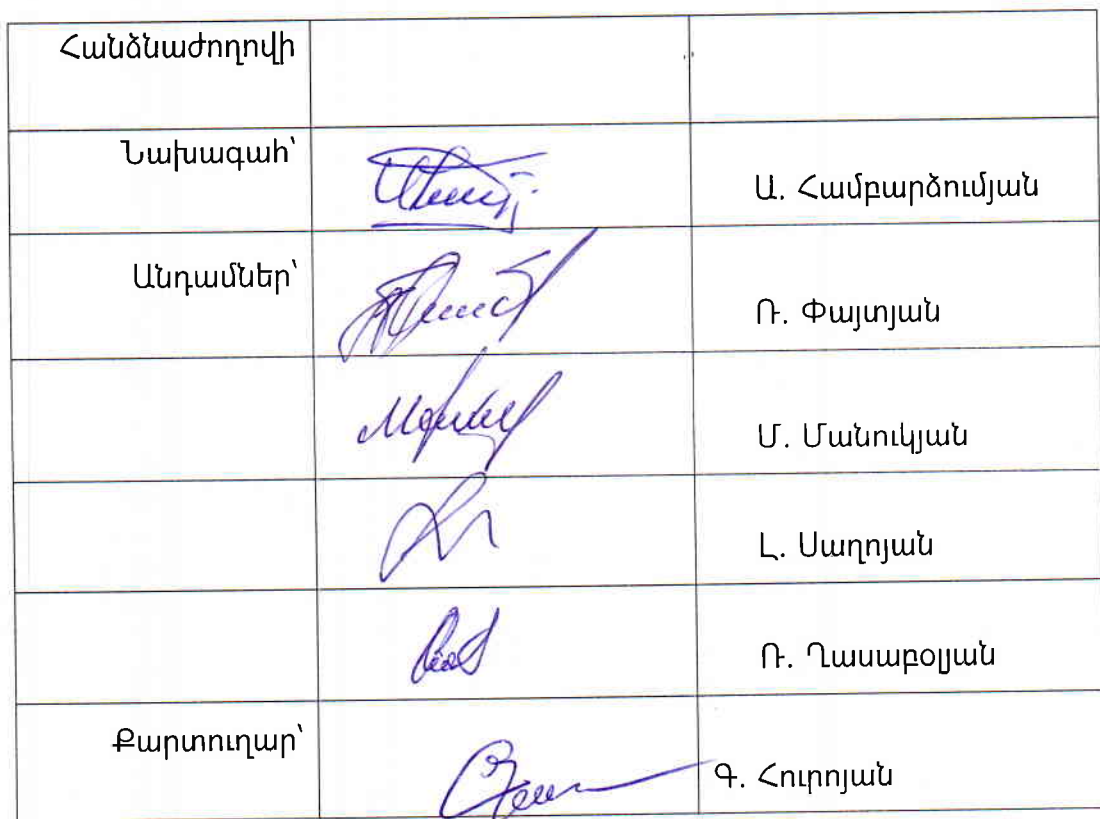 Հանձնաժողովի
Նախագահ՝
Ա. Համբարձումյան
Անդամներ՝
Ռ. Փայտյան
Մ. Մանուկյան
Լ. Սաղոյան
Ռ. Ղասաբօլյան
Քարտուղար՝
Գ. Հուրոյան